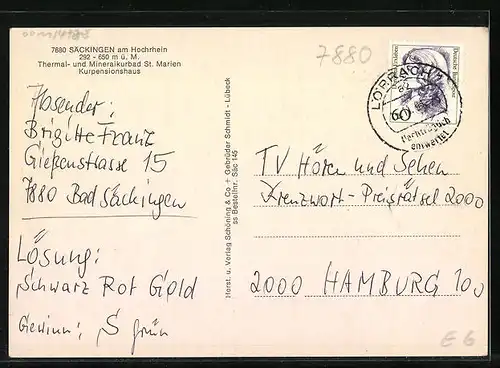 7880 SÄCKINGEN am Hochrhein
292 - 650 m ü. M.
Thermal- und Mineralkurbad St. Marien
Kurpensionshaus
7880
Absender:
Brigitte Franz
Gießenstrasse 15
7880 Bad Säckingen
Lösung:
Schwarz Rot Gold
Gewinn: S grün
Herst. u. Verlag Schöning & Co + Gebrüder Schmidt - Lübeck
ss Bestellnr. Säc 145
LÖRRACH
60
Deutsche Bundespost
nachträglich
entwertet
TV Hören und Sehen
Kreuzwort-Preisrätsel 2000
2000 HAMBURG 100
E 6